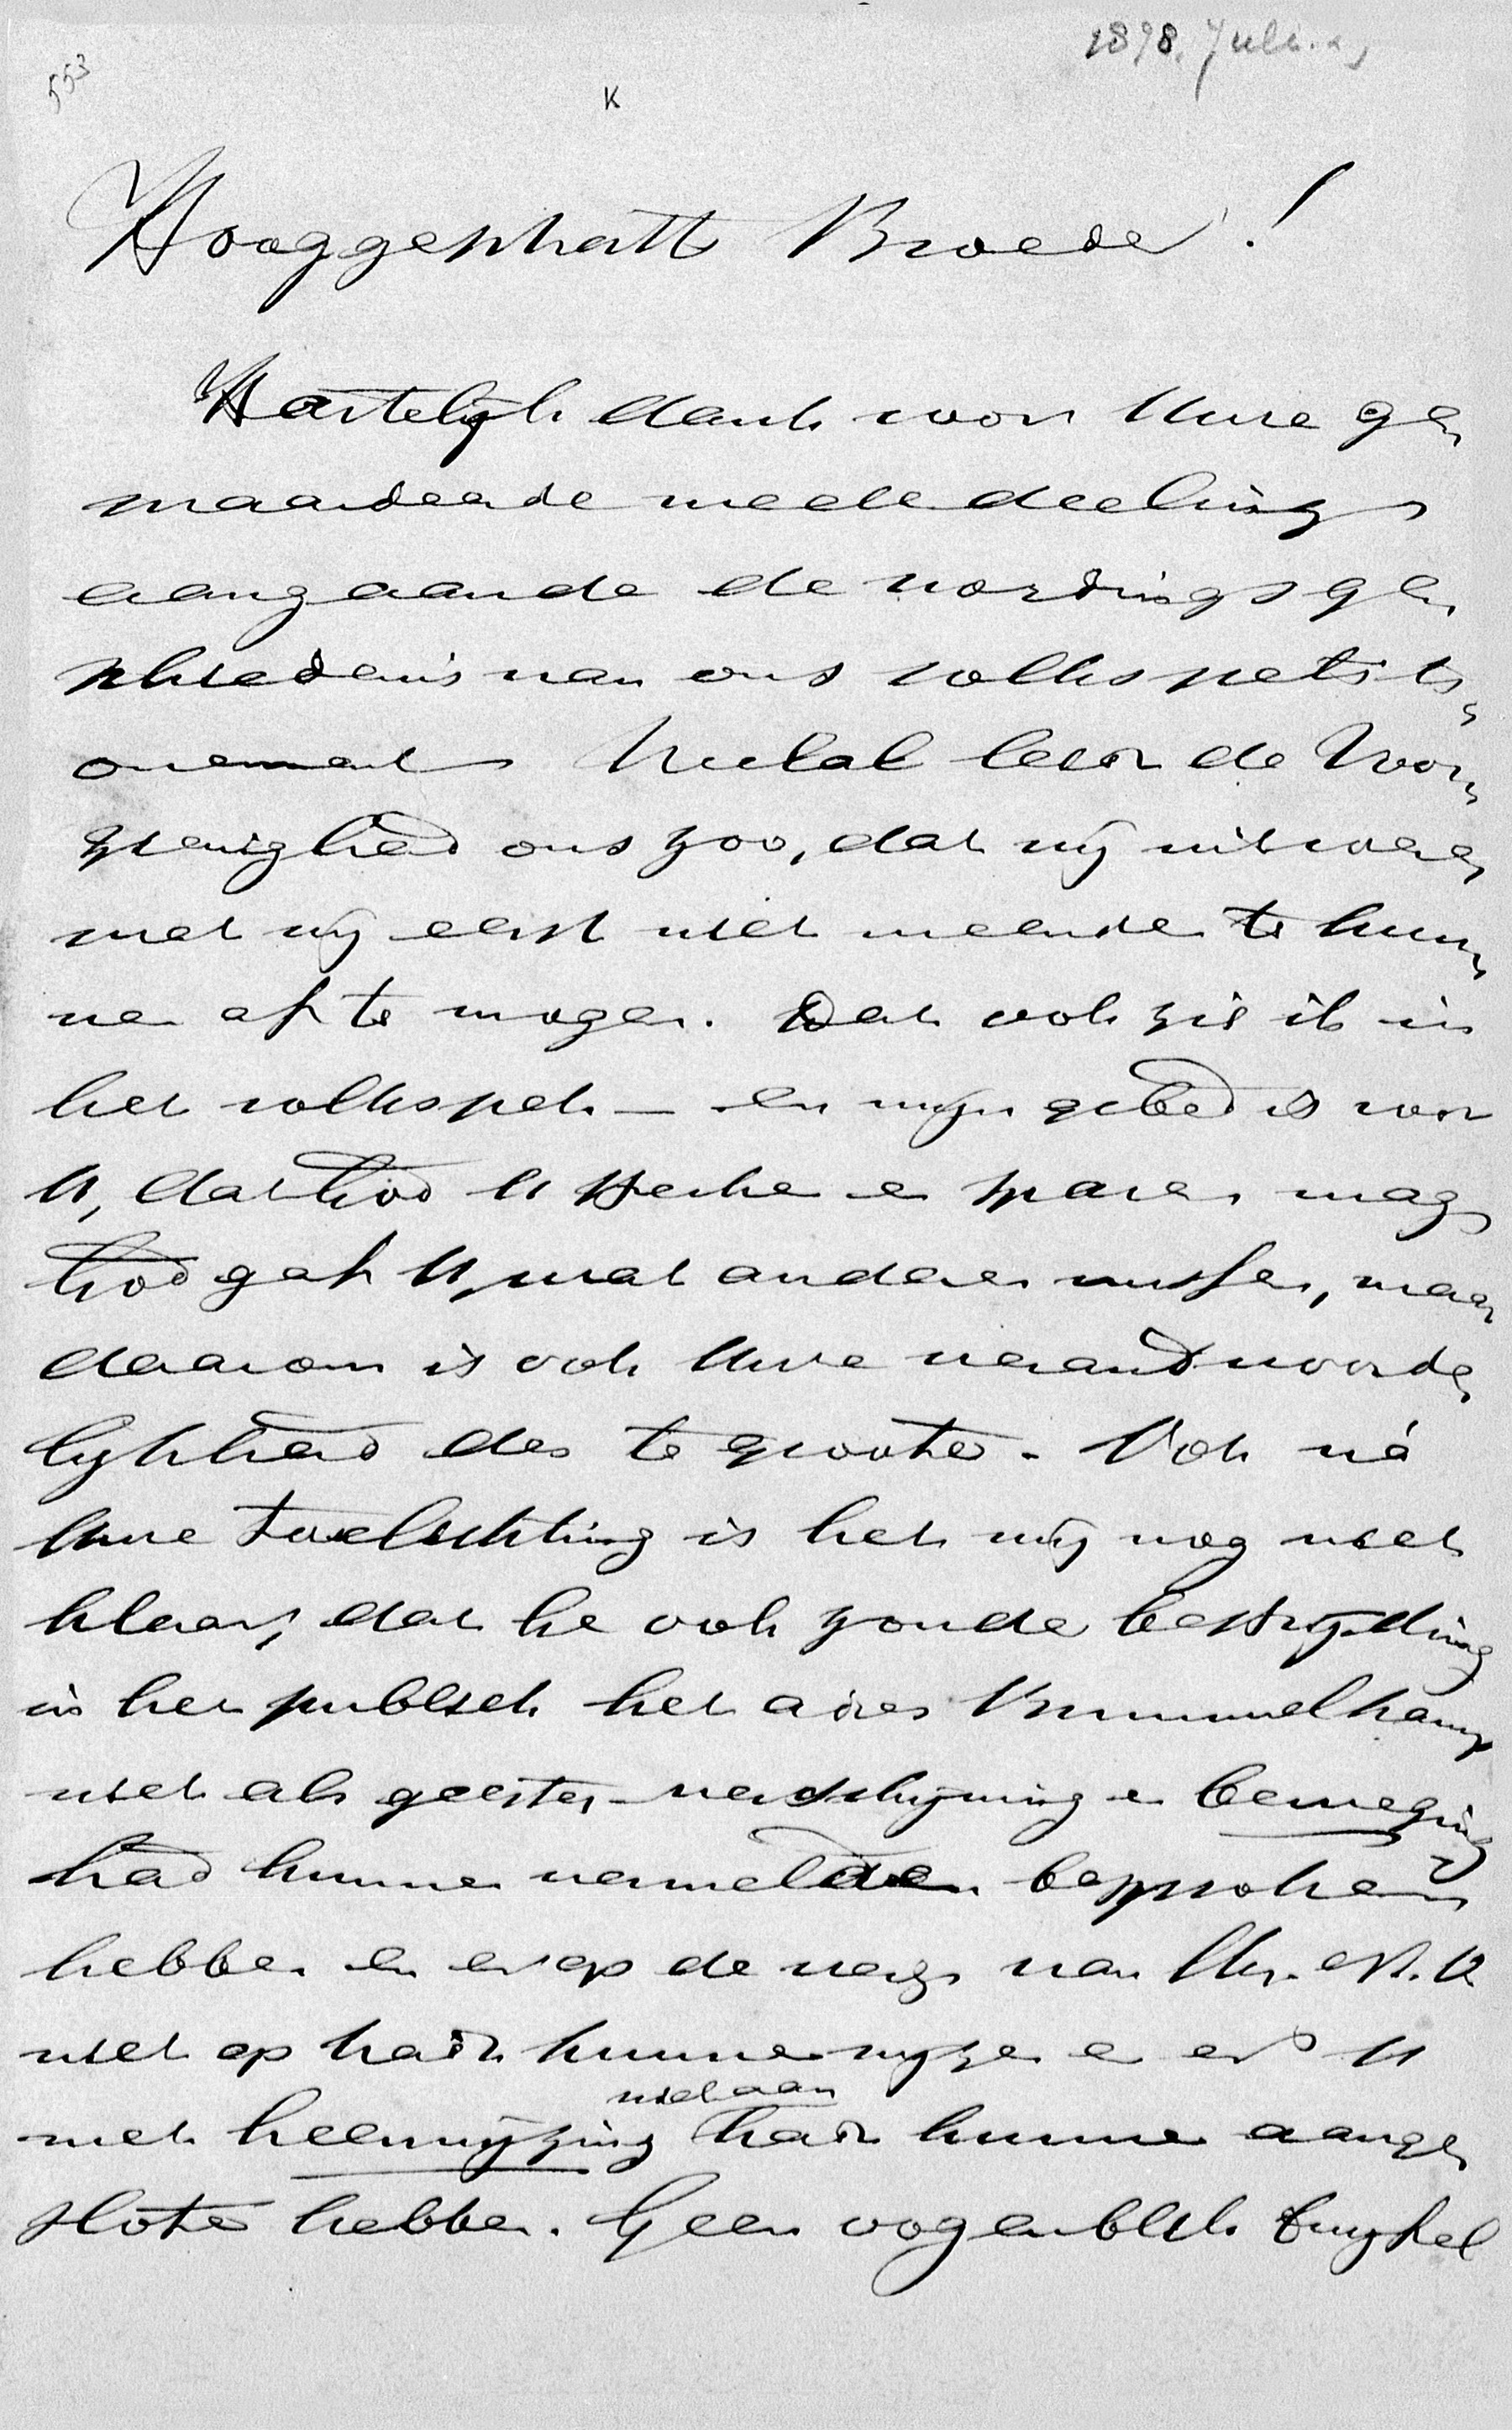 1878. Juli
553
K
Hooggeschatte Broeder!
Hartelijk dank voor Uwe ge
waardeerde mededeeling
aangaande de wordingsge
schiedenis van ons volkspetiti
onnement. Veelal leert de Voor
zienigheid ons zoo, dat wij uitvoeren
wat wij eerst niet meenden te kun
nen of te mogen. Dat ook zie ik in
het volkspet. — en mijn gebed is voor
U, dat God U sterke en spare mag
God gaf U, wat anderen missen, maar
daarom is ook Uwe verandwoorde
lijkheid des te grooter. Ook ná
Uwe toelichting is het mij nog niet
klaar, dat he ook zonder bestrijding
in het publiek het adres Brummelkamp
niet als geestes-verschijning en beweging
had kunnen vermelden besproken
hebben en er op de weg van Chr. Nt. U
niet op hadt kunnen wijzen en er U
niet aan
met heenwijzing hadt kunnen aange
sloten hebben. Geen oogenblik twijfel